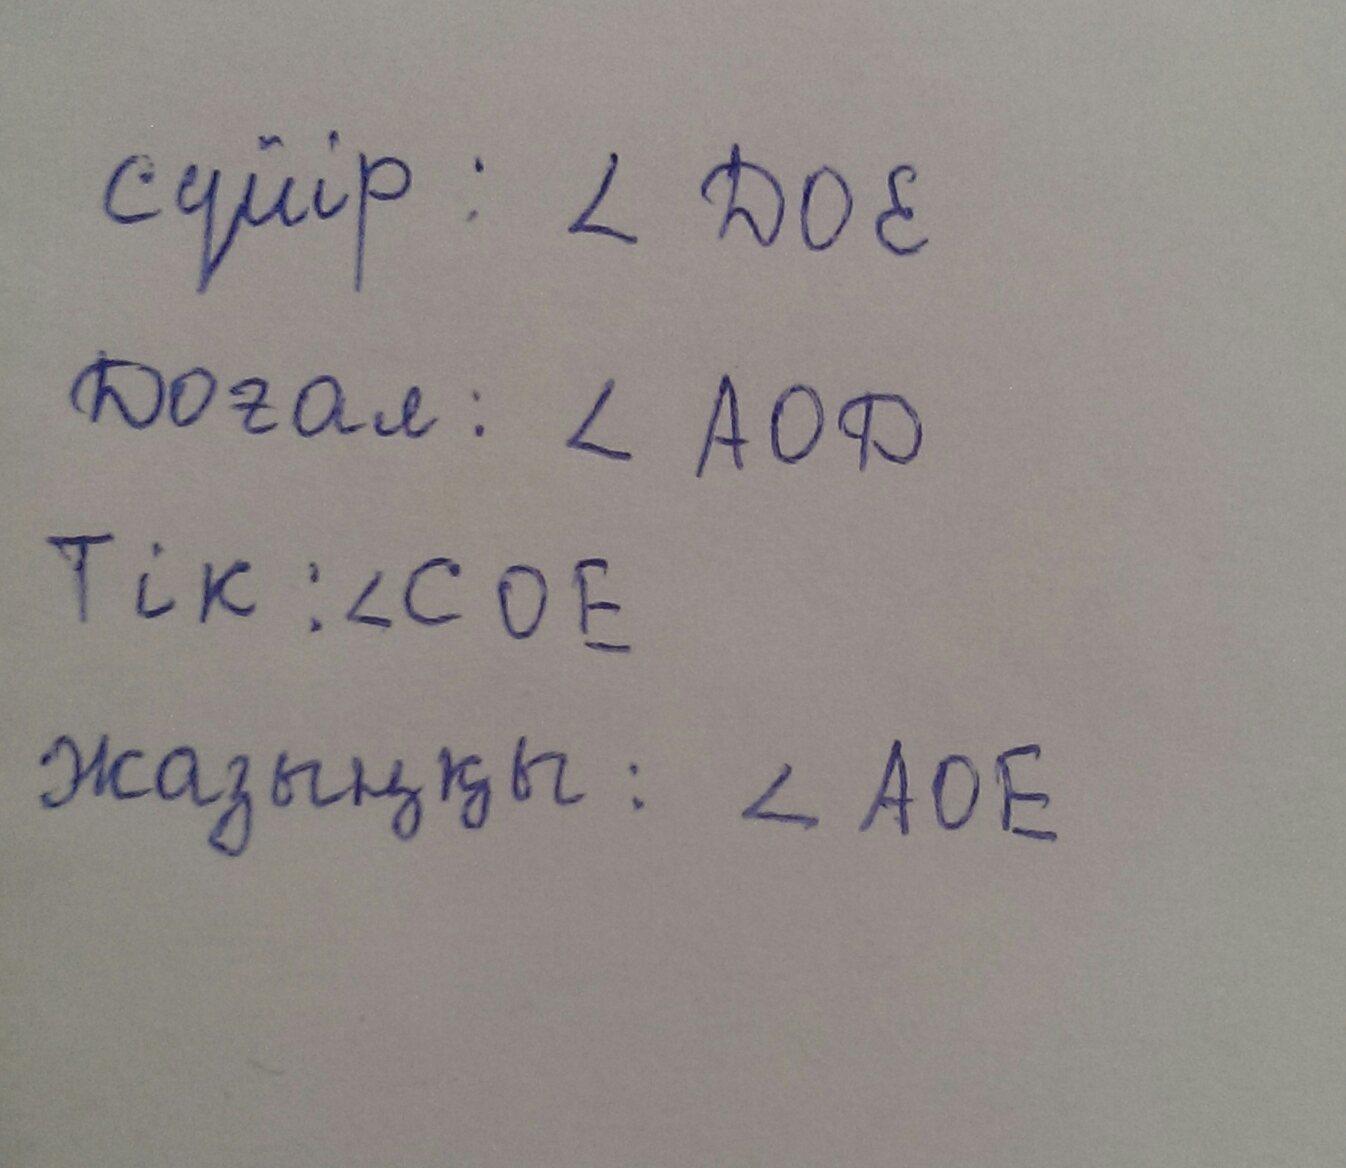 сүйір: < DOE
Доғал: < AOD
Тік: <COE
Жазыңқы: < AOE